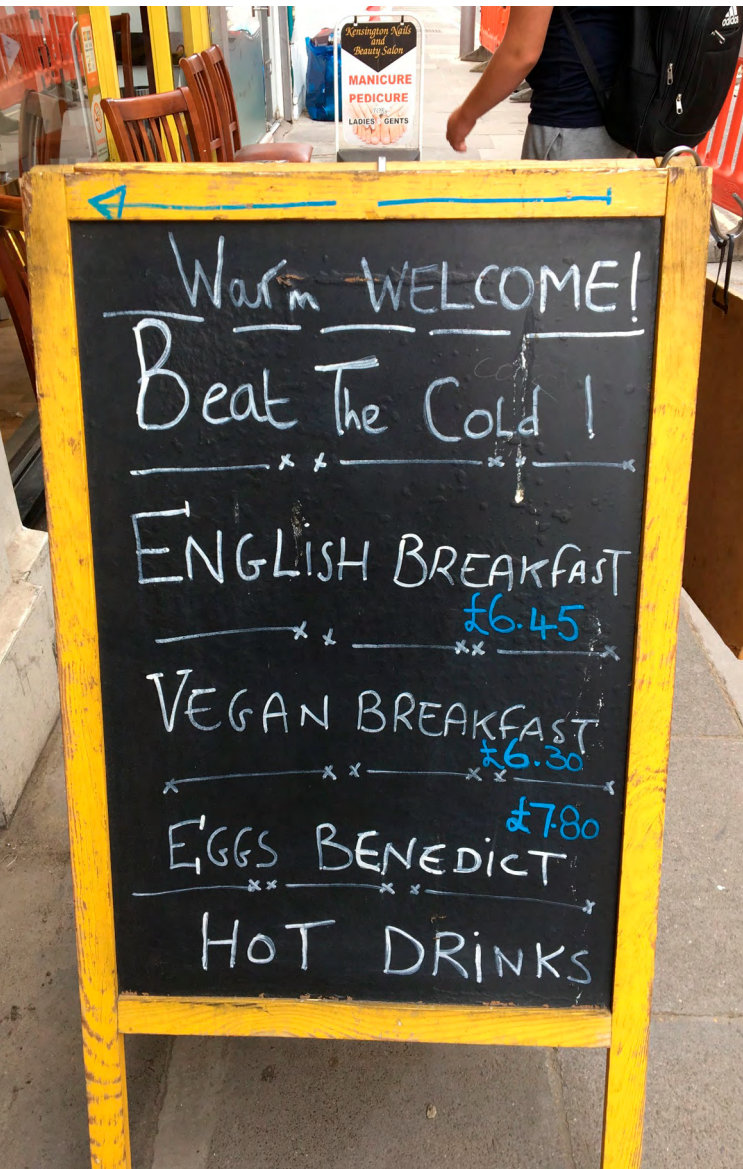 Kensington Nails
and
Beauty Salon
MANICURE
PEDICURE
LADIES GENTS
adidas
Warm WELCOME!
Beat The Cold!
ENGLiSH BREAKfAST
£6.45
VEGAN BREAKFAST
£6.30
£7.80
EGGS BENEDiCT
HoT DRiNKS